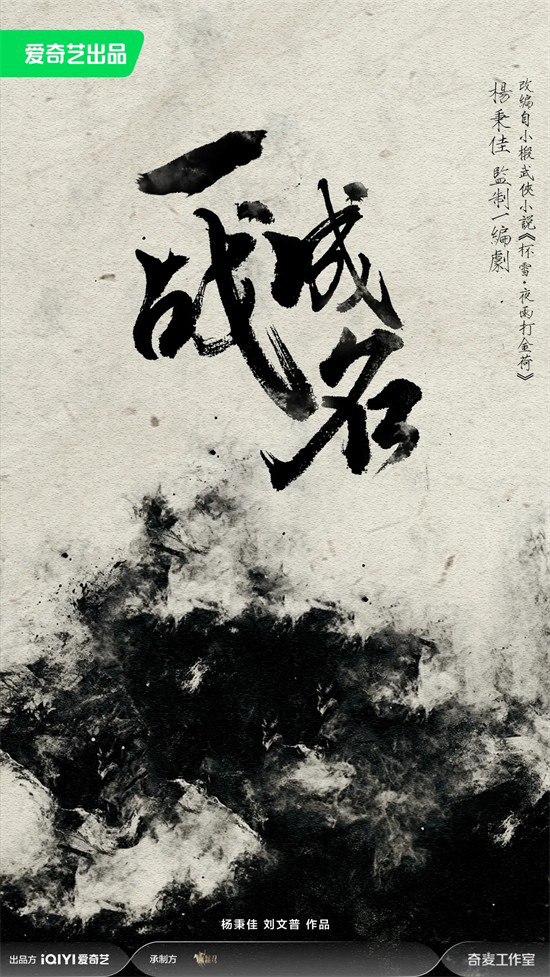 爱奇艺出品
改编自小椴武俠小説《杯雪·夜雨打金荷》
楊秉佳 監制 編劇
一战成名
杨秉佳 刘文普 作品
出品方 iQIYI爱奇艺
承制方
奇麦工作室